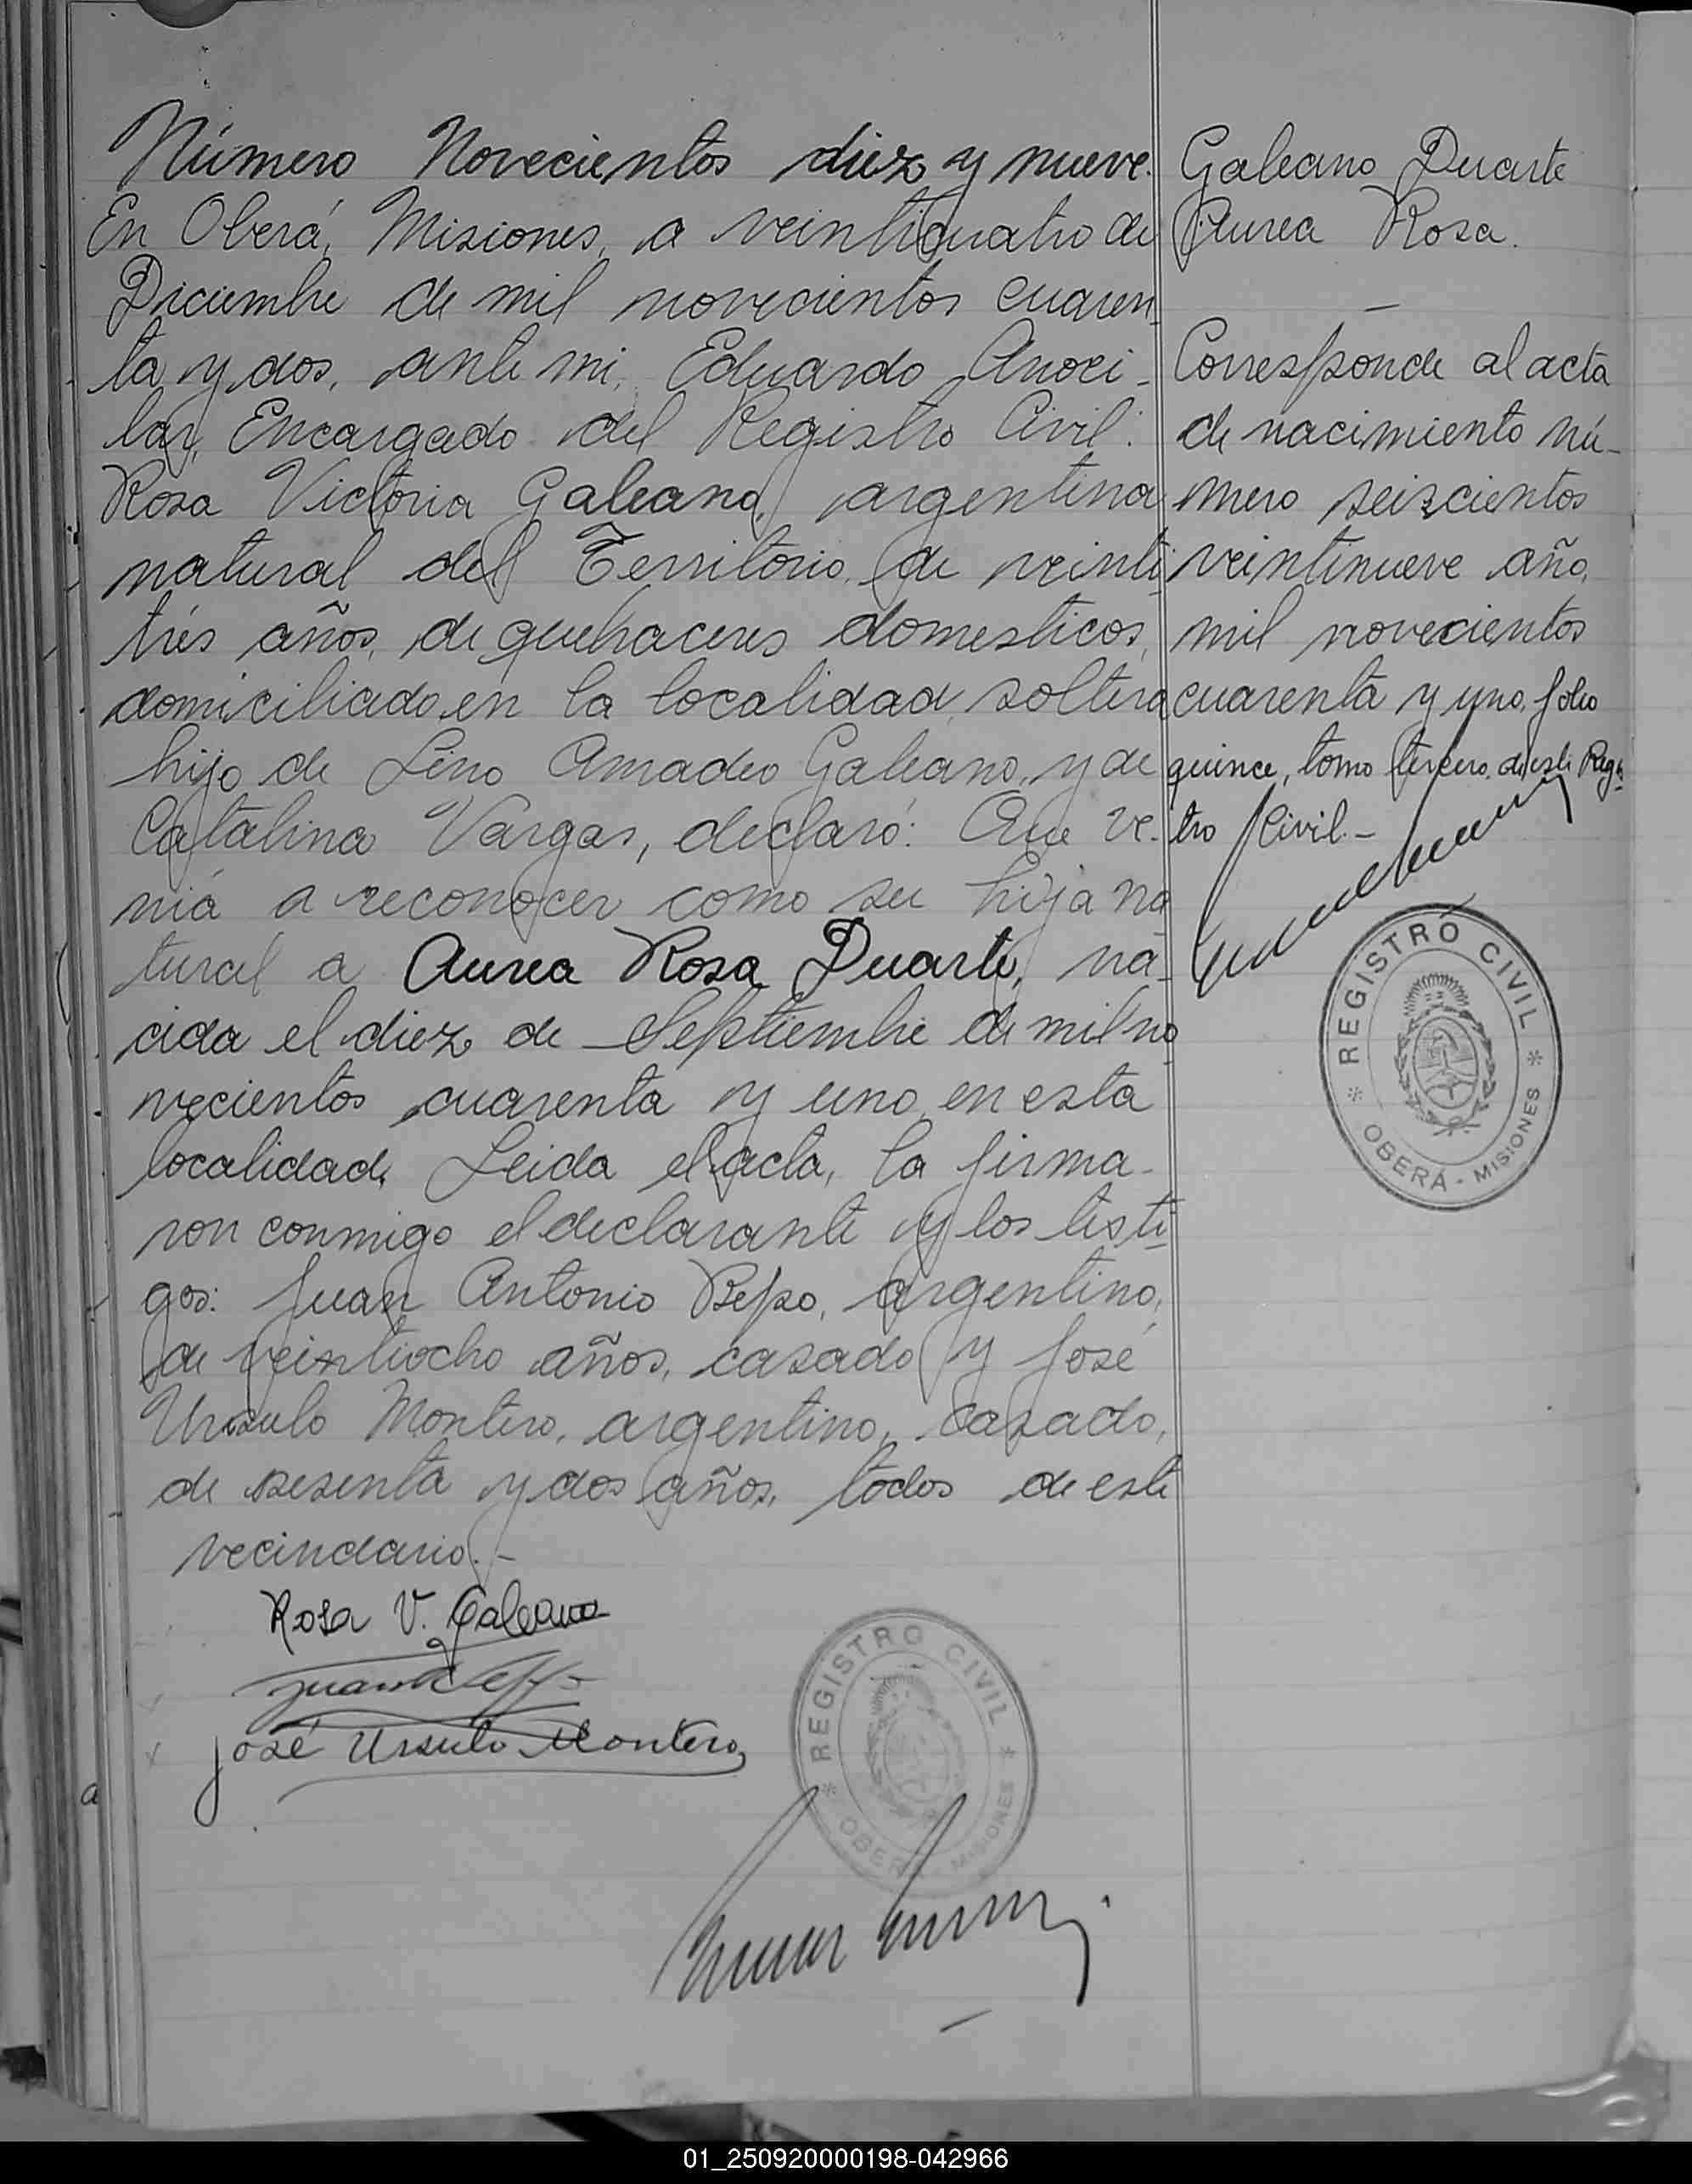 Número Novecientos diez y nueve.
En Oberá, Misiones, a veinticuatro de
Diciembre de mil novecientos cuaren_
ta y dos, ante mi, Eduardo Anoci_
lar, Encargado del Registro Civil:
Rosa Victoria Galeano, argentina
natural del Territorio, de veinti
trés años, de quehaceres domesticos,
domiciliado en la localidad, soltera
hijo de Lino Amadeo Galeano, y de
Catalina Vargas, declaró: Que ve_
niá a reconocer como su hija na
tural a Aurea Rosa Duarte, na_
cida el diez de Septiembre de mil no
vecientos cuarenta y uno, en esta
localidad. Leida el acta, la firma_
ron conmigo el declarante y los testi_
gos: Juan Antonio Bepo, argentino,
de veintiocho años, casado y José
Ursulo Montero, argentino, casado,
de sesenta y dos años, todos de este
vecindario.-
Rosa V. Galeano
José Ursulo Montero
Galeano Duarte
Aurea Rosa.
_
Corresponde al acta
de nacimiento nú_
mero seiscientos
veintinueve año,
mil novecientos
cuarenta y uno, folio
quince, tomo tercero, de este Regis
tro Civil.-
REGISTRO CIVIL
* OBERÁ - MISIONES *
REGISTRO CIVIL
* OBERÁ - MISIONES *
a
01_250920000198-042966